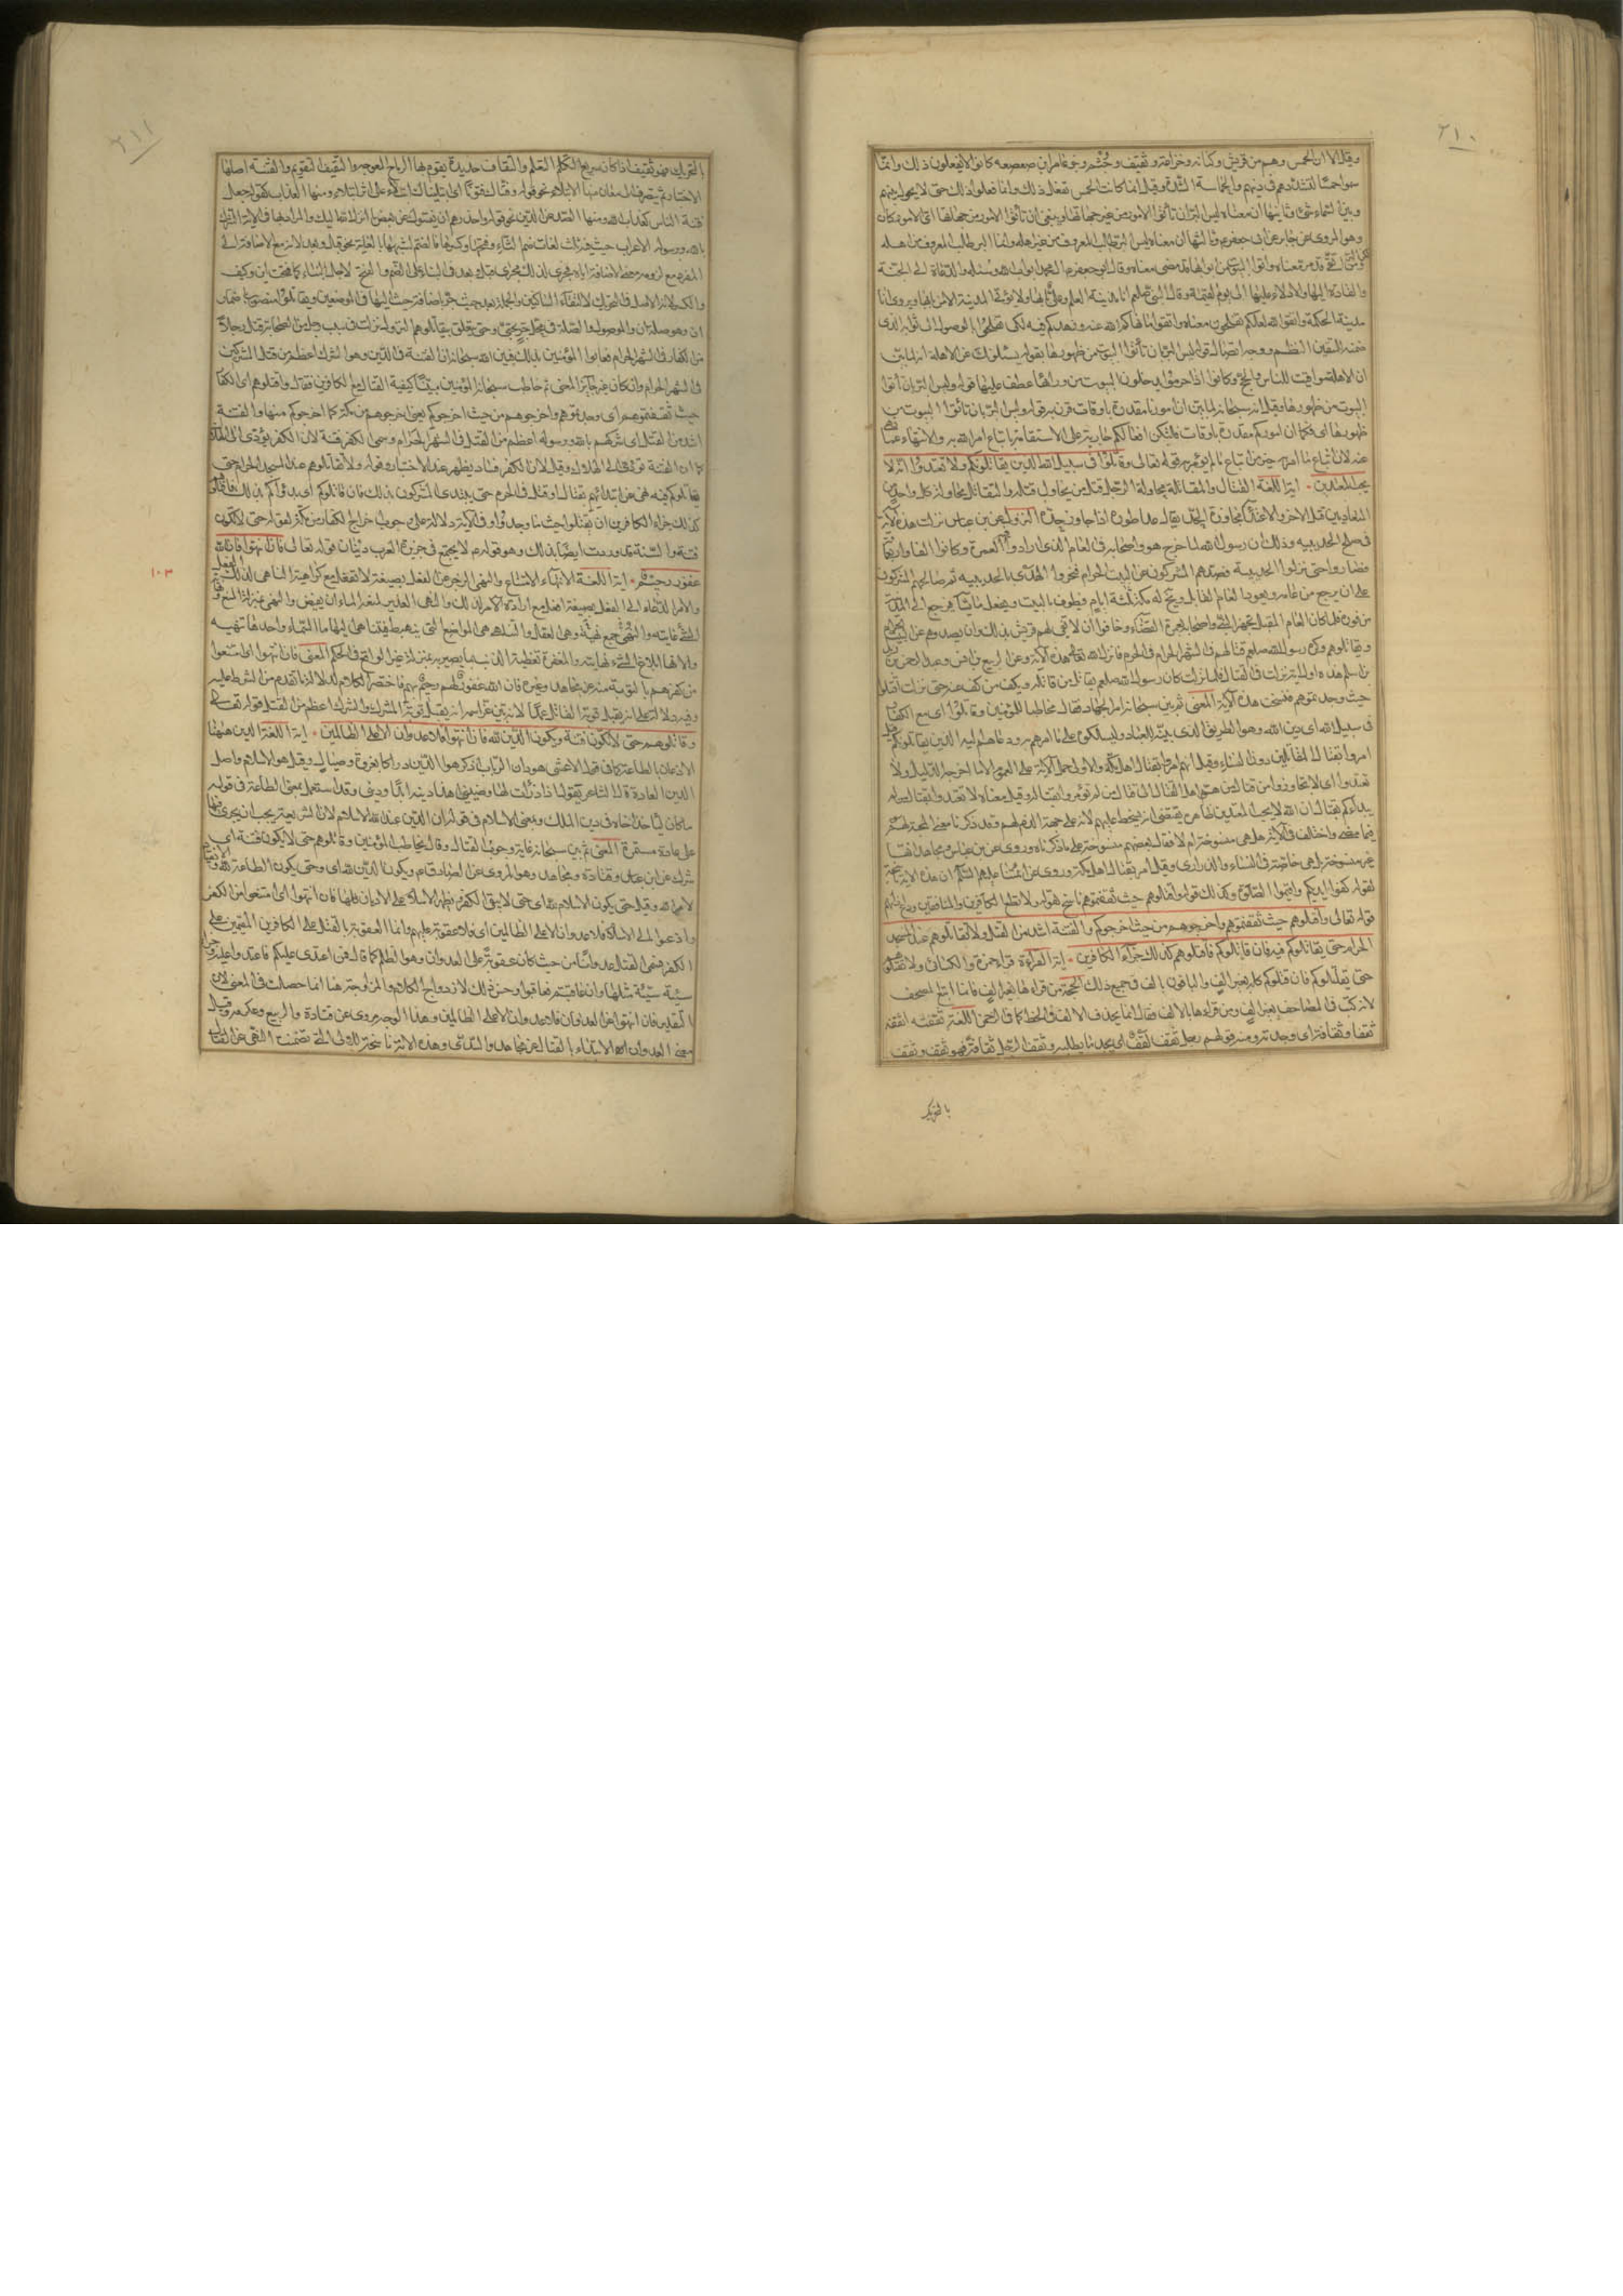 ٢١٠
وقيل الا ان الحمس وهم من قريش وكنانه وخزاعة وثقيف وخثعم وبنو عامر ابن صعصعه كانوا لا يفعلون ذلك وانما
سموا حمسا لتشددهم فى دينهم والحماسة الشدة وقيل انما كانت الحمس تفعل ذلك وانما فعلوا ذلك حتى لا يحول بينهم
وبين السماء شئ وثانيها ان معناه ليس البر ان تأتوا الامور من غير جهاتها وينبغى ان تأتوا الامور من جهاتها اى الامور كان
وهو المروى عن جابر عن ابى جعفر وثالثها ان معناه ليس البر طلب المعروف من غير اهله وانما البر طلب المعروف من اهله
قد مر معناه واتوا البيوت من ابوابها قد مضى معناه وقال ابو جعفر ال محمد ابواب الله وسبله والدعاة الى الجنة
والقادة اليها والادلاء عليها الى يوم القيمة وقال النبى صلعم انا مدينة العلم وعلى بابها ولا تؤتى المدينة الا من بابها ويروى انا
مدينة الحكمة واتقوا الله لعلكم تفلحون معناه واتقوا ما نهاكم الله عنه وزهدكم فيه لكى تفلحوا بالوصول الى ثوابه الذى
ضمنه للمتقين النظم ووجه اتصال قوله ليس البر بان تأتوا البيوت من ظهورها بقوله يسئلونك عن الاهلة انه لما بين
ان الاهلة مواقيت للناس والحج وكانوا اذا احرموا يدخلون البيوت من ورائها عطف عليها قوله وليس البر بان تأتوا
البيوت من ظهورها وقيل انه سبحانه لما بين ان امورنا مقدرة باوقات قرن به قوله وليس البر بان تأتوا البيوت من
ظهورها اى فكما ان اموركم مقدرة باوقات فلتكن افعالكم جارية على الاستقامة باتباع امر الله به والانتهاء عما نهى
عنه لان اتباع ما امر به خير من اتباع ما لم يؤمر به قوله تعالى وقاتلوا فى سبيل الله الذين يقاتلونكم ولا تعتدوا ان الله لا
يحب المعتدين ٠ اية اللغة القتال والمقاتلة محاولة الرجل قتل من يحاول قتله والتقاتل محاولة كل واحد من
المتعاديين قتل الاخر والاعتداء مجاوزة الحد يقال عدا طوره اذا جاوز حده النزول عن ابن عباس نزلت هذه الآية
فى صلح الحديبيه وذلك ان رسول الله لما خرج هو واصحابه فى العام الذى ارادوا فيه العمرة وكانوا الفا واربعمائة
فصاروا حتى نزلوا الحديبيه فصدهم المشركون عن البيت الحرام فنحروا الهدى بالحديبيه ثم صالحهم المشركون
على ان يرجع من عامه ويعود العام القابل ويخلوا له مكة ثلثة ايام فيطوف بالبيت ويفعل ما يشاء فرجع الى المدينة
من فوره فلما كان العام المقبل تجهز النبى واصحابه لعمرة القضاء وخافوا ان لا تفى لهم قريش بذلك وان يصدوهم عن البيت الحرام
ويقاتلوهم وكره رسول الله صلعم قتالهم فى الشهر الحرام فى الحرم فانزل الله تعالى هذه الآية وعن الربيع بن انس وعبد الرحمن بن زيد
بن اسلم هذه اول اية نزلت فى القتال فلما نزلت كان رسول الله صلعم يقاتل من قاتله ويكف من كف عنه حتى نزلت اقتلوا المشركين
حيث وجدتموهم فنسخت هذه الآية المعنى ثم بين سبحانه امر الجهاد فقال مخاطبا للمؤمنين وقاتلوا اى مع الكفار
فى سبيل الله اى دين الله وهو الطريق الذى بينه للعباد ليسلكوه على ما امرهم به ودعاهم اليه الذين يقاتلونكم قيل
امروا بقتال المقاتلين دون النساء وقيل انهم امروا بقتال اهل مكة والاولى حمل الآية على العموم الا ما اخرجه الدليل ولا
تعتدوا اى لا تجاوزوا من قتال من هو من اهل القتال الى قتال من لم تؤمروا بقتاله وقيل معناه لا تعتدوا بقتال من لم
يبدأكم بقتال ان الله لا يحب المعتدين ظاهره يقتضى انه يسخط عليهم لانه على جهة الذم لهم وقد ذكرنا معنى المحبة لهم
فيما مضى واختلف فى الآية هل هى منسوخة ام لا فقال بعضهم منسوخة على ما ذكرناه وروى عن ابن عباس ومجاهد انها
غير منسوخة بل هى خاصة فى النساء والذرارى وقيل امر بقتال اهل مكة وروى عن ائمتنا عليهم السلام ان هذه الآية ناسخة
لقوله كفوا ايديكم واقيموا الصلوة وكذلك قوله واقتلوهم حيث ثقفتموهم ناسخ لقوله ولا تطع الكافرين والمنافقين ودع اذاهم
قوله تعالى واقتلوهم حيث ثقفتموهم واخرجوهم من حيث اخرجوكم والفتنة اشد من القتل ولا تقاتلوهم عند المسجد
الحرام حتى يقاتلوكم فيه فان قاتلوكم فاقتلوهم كذلك جزآء الكافرين ٠ اية القراءة قراء حمزة والكسائى ولا تقتلوهم
حتى يقتلوكم فان قتلوكم كله بغير الف والباقون بالف فى جميع ذلك الحجة من قراء لها بغير الف فانما اتبع المصحف
لانه كتب فى المصاحف بغير الف ومن قرا ها بالالف فقال انما يحذف الالف فى الخط كما فى الرحمن اللغة ثقفته اثقفه
ثقفا وثقافة اى وجدته ومنه قولهم رجل ثقف لقف اى يجد ما يطلبه وثقف الرجل ثقافة فهو ثقف وثقف
بالتحريك
٢١١
بالتحريك فهو ثقيف اذا كان سريع التعلم والثقاف حديدة يقوم بها الرماح المعوجة والتثقيف التقويم والفتنة اصلها
الاختبار ثم يتصرف الى معان منها الابتلاء نحو قوله وفتناك فتونا اى ابتليناك ابتلاء على اثر ابتلاء ومنها العذاب كقوله جعل
فتنة الناس كعذاب الله ومنها الصد عن الدين نحو قوله واحذرهم ان يفتنوك عن بعض ما انزل الله اليك والمراد بها فى الاية الشرك
بالله ورسوله الاعراب حيث فيه ثلث لغات ضم الثاء وفتحها وكسرها
المفرد مع لزومه معنى الاضافة
والكسر لانه الاصل فى التحريك لالتقاء الساكنين والجملة بعد حيث
ان وهو صلة ان والموصول والصلة فى محل جر بحتى وحتى يتعلق بتقاتلوهم النزول نزلت فى سبب رجل من الصحابة قتل رجلا
من الكفار فى الشهر الحرام فعابوا المؤمنين بذلك فبين الله سبحانه ان الفتنة فى الدين وهو الشرك اعظم من قتل المشركين
فى الشهر الحرام وان كان غير جائز المعنى ثم خاطب سبحانه المؤمنين مبينا كيفية القتال مع الكافرين فقال واقتلوهم اى الكفار
حيث ثقفتموهم اى وجدتموهم واخرجوهم من حيث اخرجوكم يعنى اخرجوهم من مكة كما اخرجوكم منها والفتنة
اشد من القتل اى شركهم بالله ورسوله اعظم من القتل فى الشهر الحرام وسمى الكفر فتنة لان الكفر يؤدى الى الهلاك
كما ان الفتنة تؤدى الى الهلاك وقيل لان الكفر فساد يظهر عند الاختبار وقوله ولا تقاتلوهم عند المسجد الحرام حتى
يقاتلوكم فيه نهى عن ابتدائهم بقتال او قتل فى الحرم حتى يبتدئ المشركون بذلك فان قاتلوكم اى بدؤاكم بذلك فاقتلوهم
كذلك جزاء الكافرين ان يقتلوا حيث ما وجدوا وفى الآية دلالة على وجوب اخراج الكفار من مكة لقوله حتى لا تكون
فتنة والسنة قد وردت ايضا بذلك وهو قوله لا يجتمع فى جزيرة العرب دينان قوله تعالى فان انتهوا فان الله
غفور رحيم ٠ اية اللغة الانتهاء الامتناع والنهى الزجر عن الفعل بصيغة لا تفعل مع كراهية الناهى لذلك الفعل
والامر الدعاء الى الفعل بصيغة افعل مع ارادة الامر لذلك والنهى الغدير لمنعه الماء ان يفيض والنهى بمنزلة المنع ونهاية
الشئ غايته والنهى جمع نهية وهى العقل والتناهى هى المواضع التى ينهبط فيتناهى اليها ماء السماء واحدها تنهية
والانهاء ابلاغ الشئ نهايته والمغفرة تغطية الذنب بما يصير به بمنزلة غير الواقع فى الحكم المعنى فان انتهوا اى امتنعوا
من كفرهم بالتوبة منه عن مجاهد وغيره فان الله غفور لهم رحيم بهم فاختصر الكلام لدلالة ما تقدم من الشرط عليه
وفيه دلالة على انه يقبل توبة القاتل عمدا لانه بين عز اسمه انه يقبل توبة المشرك والشرك اعظم من القتل قوله تعالى
وقاتلوهم حتى لا تكون فتنة ويكون الدين لله فان انتهوا فلا عدوان الا على الظالمين ٠ اية اللغة الدين ههنا
الاذعان بالطاعة كما فى قول الاعشى هو دان الرباب اذ كرهوا الدين دراكا بغزوة وصيال وقيل هو الاسلام واصل
الدين العادة قال الشاعر تقول اذا درأت لها وضينى اهذا دينه ابدا ودينى وقد استعمل بمعنى الطاعة فى قوله
ما كان ليأخذ اخاه فى دين الملك وبمعنى الاسلام فى قوله ان الدين عند الله الاسلام لان الشريعة يجب ان يجرى فيها
على عادة مستمرة المعنى ثم بين سبحانه غاية وجوب القتال وقال يخاطب المؤمنين وقاتلوهم حتى لا يكون فتنة اى
شرك عن ابن عباس وقتادة ومجاهد وهو المروى عن الصادق ويكون الدين لله اى وحتى يكون الطاعة لله والانقياد
لامر الله وقيل حتى يكون الاسلام لله اى حتى لا يبقى الكفر ويظهر الاسلام على الاديان كلها فان انتهوا اى امتنعوا من الكفر
واذعنوا الى الاسلام فلا عدوان الا على الظالمين اى فلا عقوبة عليهم وانما العقوبة بالقتل على الكافرين المقيمين على
الكفر فسمى القتل عدوانا من حيث كان عقوبة على العدوان وهو الظلم كما قال فمن اعتدى عليكم فاعتدوا عليه وجزاء
سيئة سيئة مثلها وان عاقبتم فعاقبوا وحسن ذلك لازدواج الكلام والمزاوجة هنا انما حصلت فى المعنى لان
التقدير فان انتهوا عن العدوان فلا عدوان الا على الظالمين وهذا الوجه مروى عن قتادة والربيع وعكرمة وقيل
معنى العدوان الابتداء بالقتال عن مجاهد والسدى وهذه الآية ناسخة للاولى التى تضمنت النهى عن القتال
١٠٣